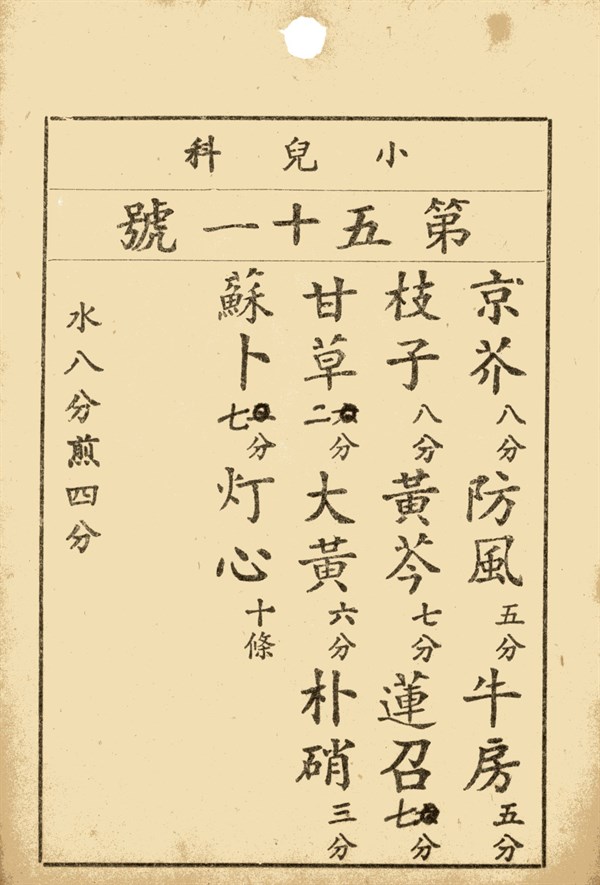 小兒科
第五十一號
京芥八分防風五分牛房五分
枝子八分黃芩七分蓮召七分
甘草二分大黃六分朴硝三分
蘇卜七分灯心十條
水八分煎四分